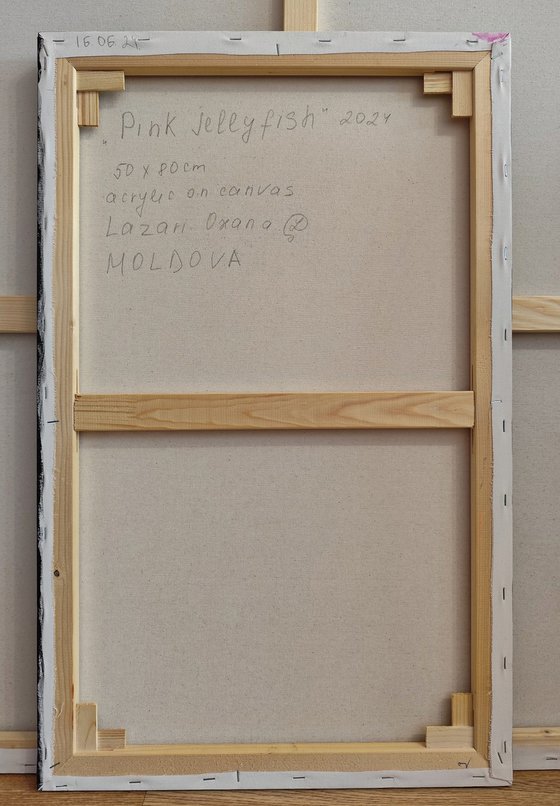 16 06 24
„Pink jellyfish" 2024
50 x 80 cm
acrylic on canvas
Lazari Oxana
MOLDOVA